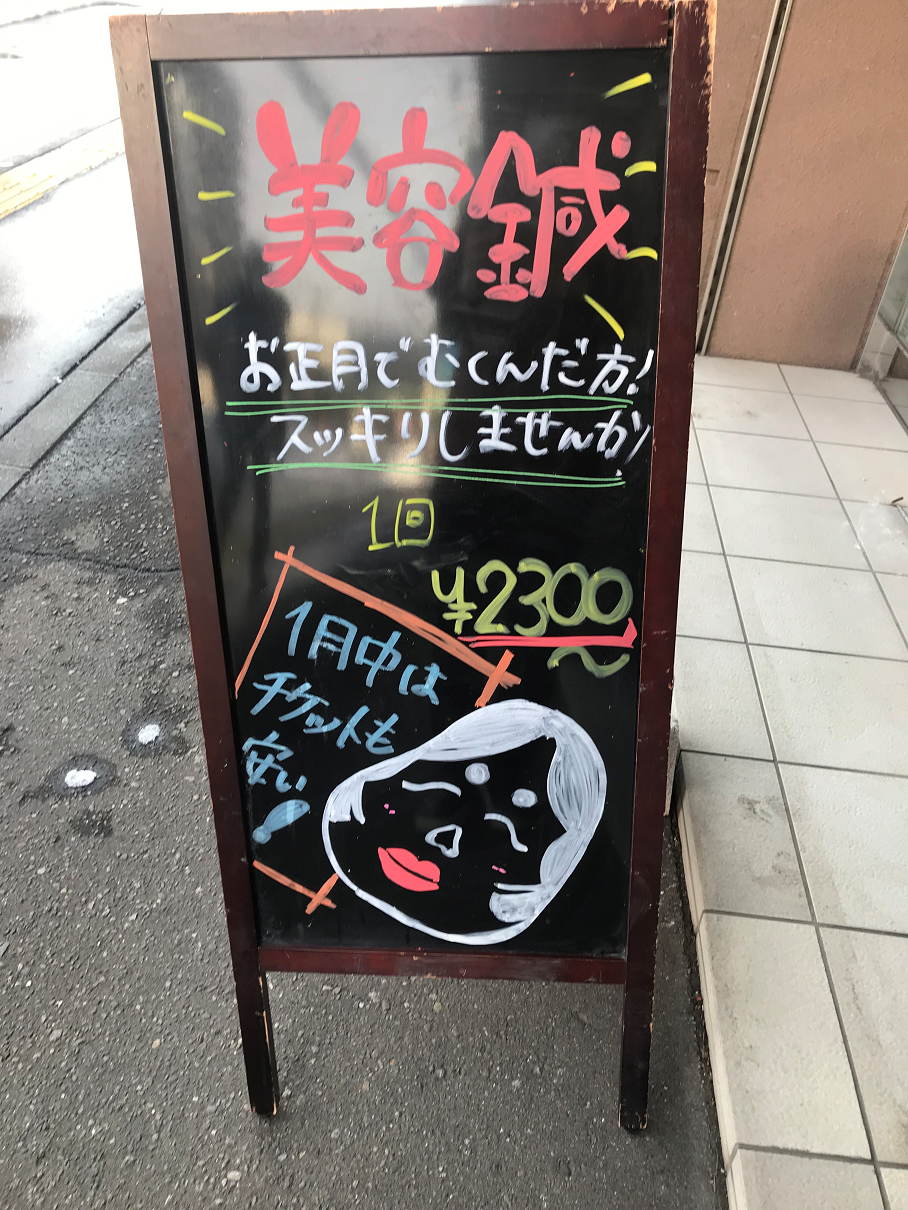 美容鍼
お正月でむくんだ方!
スッキリしませんか
1回
¥2300
〜
1月中は
チケットも
安い!